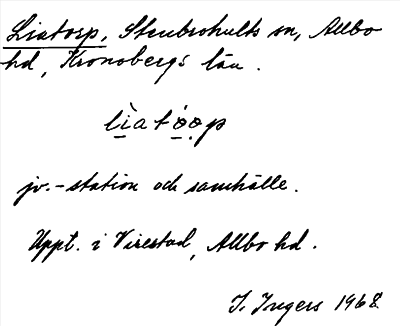 Liatorp, Stenbrohults sn, Allbo
hd, Kronobergs län.
lìatọọp
jv.-station och samhälle.
Uppt. i Virestad, Allbo hd.
I. Ingers 1968.